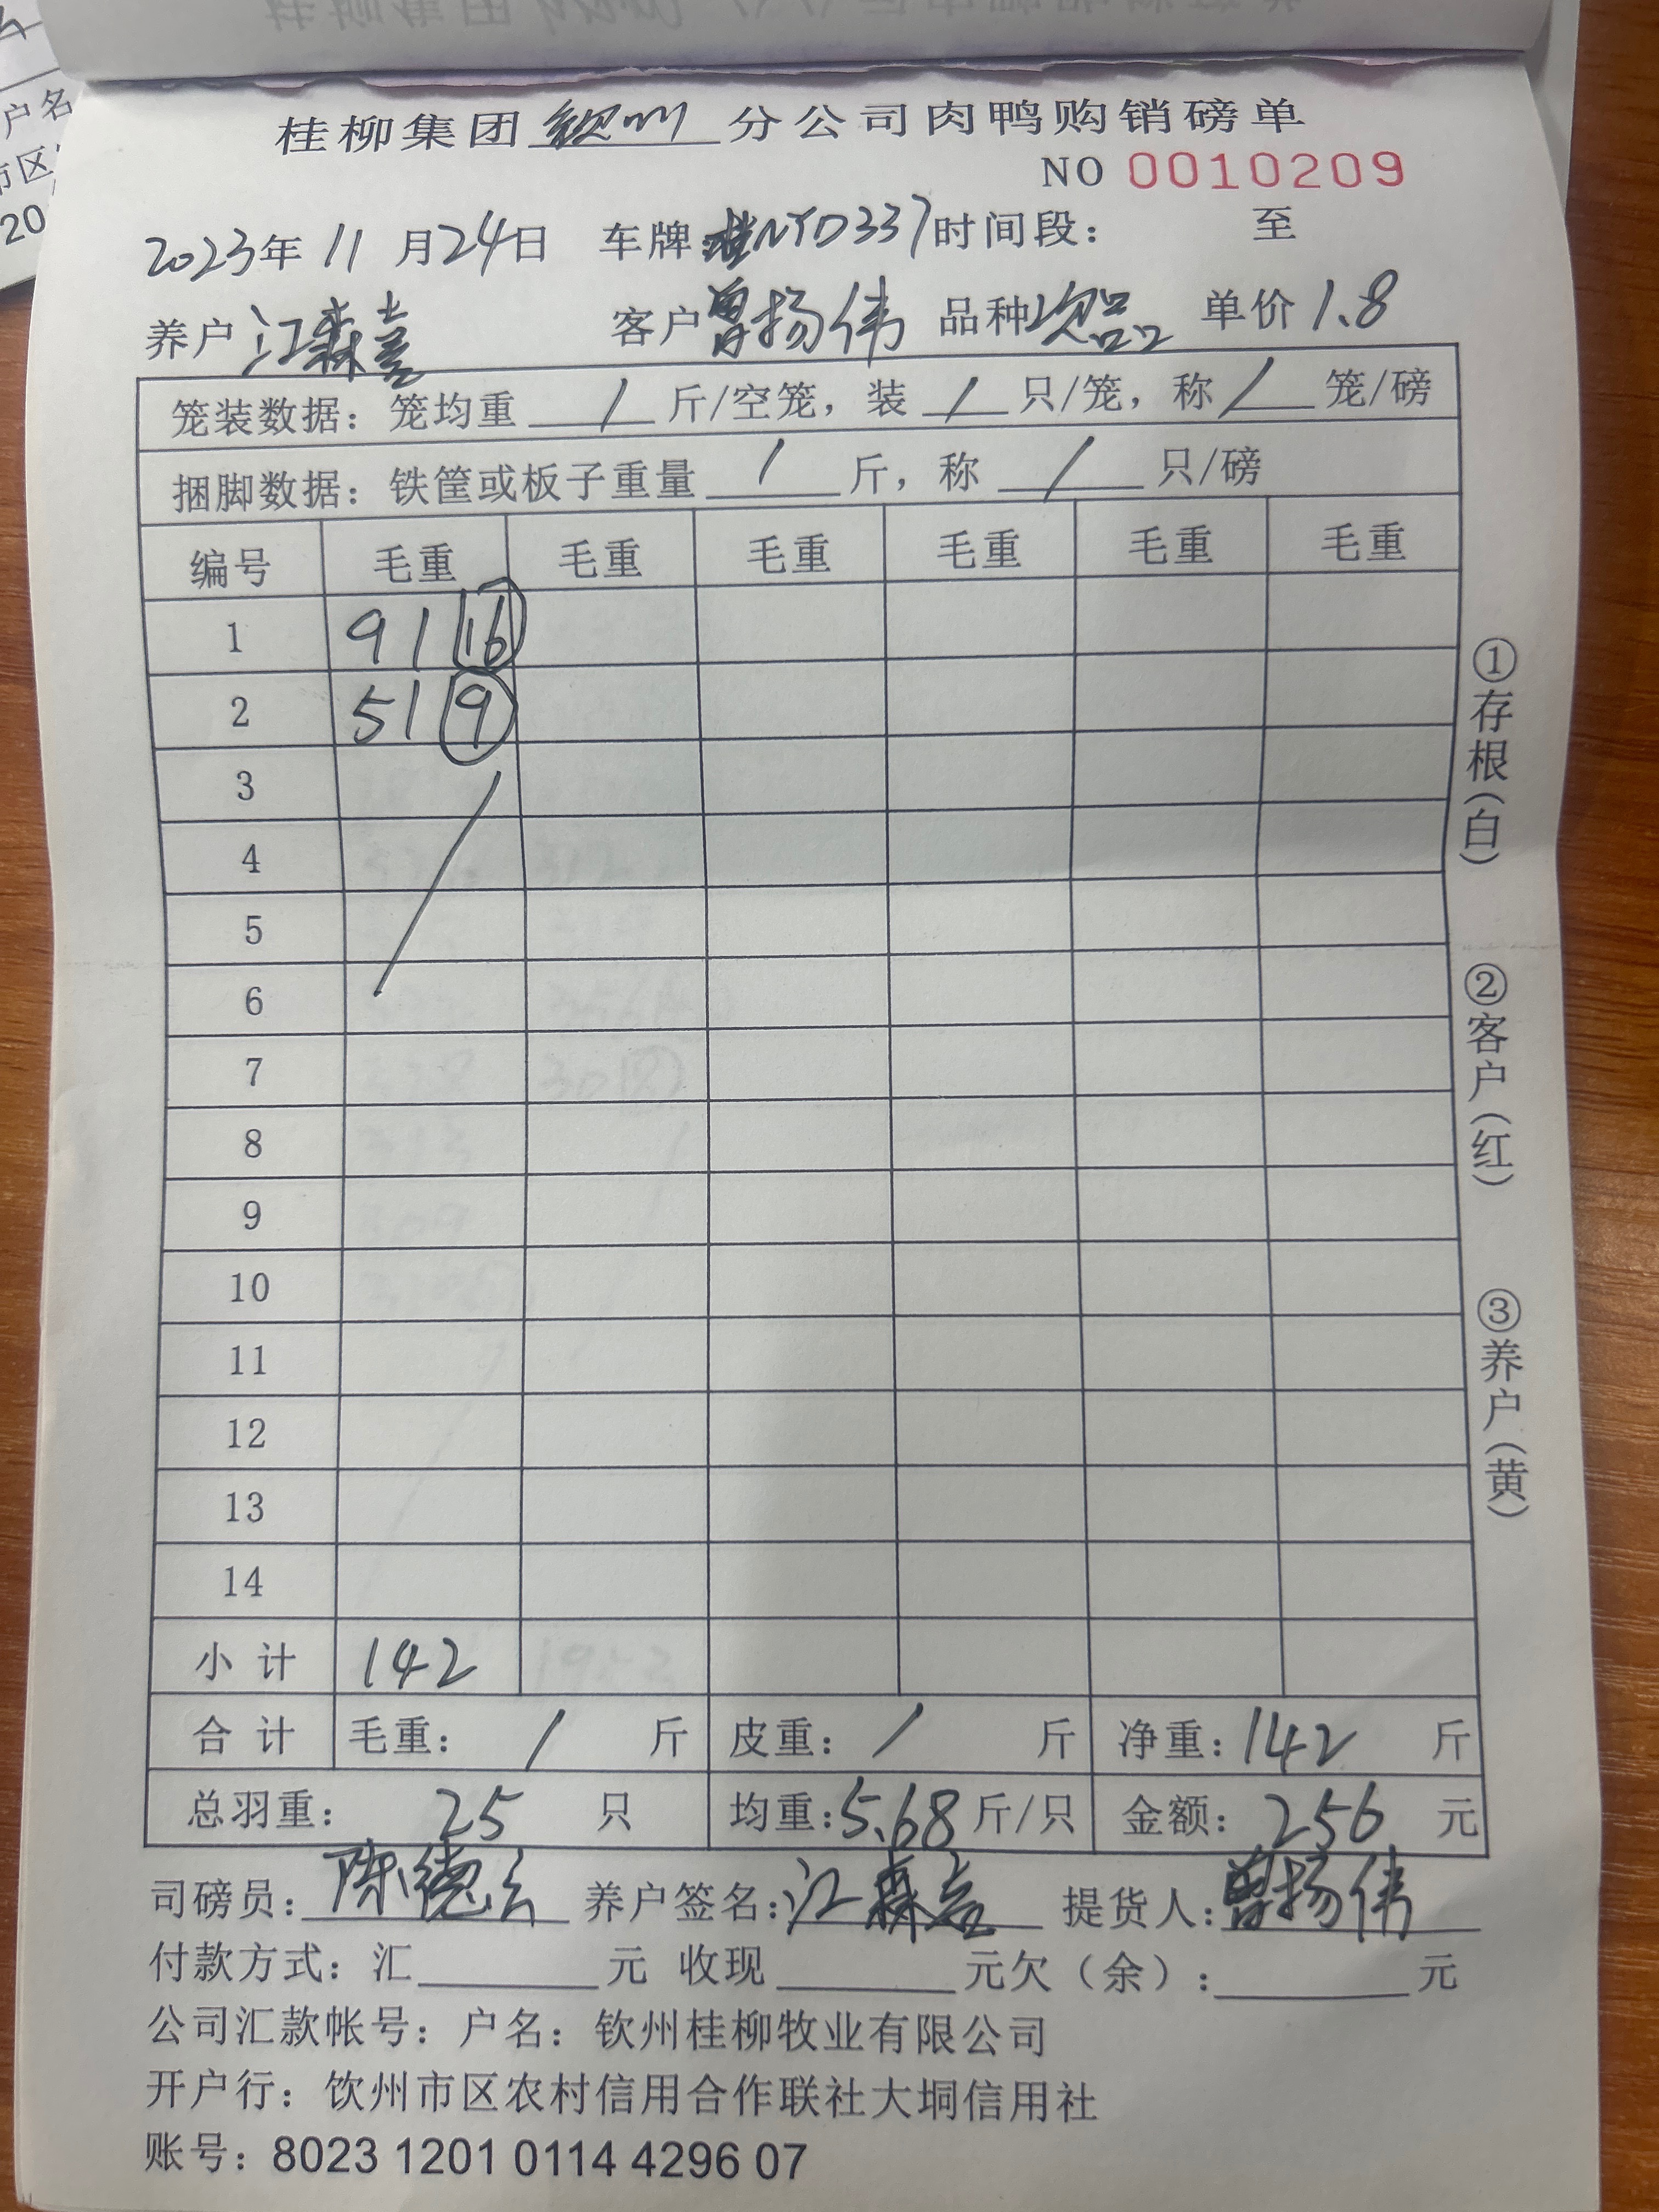 桂柳集团钦州分公司肉鸭购销磅单
NO 0010209
2023年11月24日 车牌:桂NYD337 时间段: 至
养户 江森 客户 曾扬伟 品种 次品 单价 1.8
笼装数据:笼均重 / 斤/空笼,装 / 只/笼,称 / 笼/磅
捆脚数据:铁筐或板子重量 / 斤,称 / 只/磅
编号 毛重 毛重 毛重 毛重 毛重 毛重
1 91 16
2 51 9
3
4
5
6
7
8
9
10
11
12
13
14
小计 142
合计 毛重: / 斤 皮重: / 斤 净重:142 斤
总羽重: 25 只 均重:5.68 斤/只 金额:256 元
司磅员:陈德云 养户签名:江森 提货人:曾扬伟
付款方式:汇 元 收现 元欠(余): 元
公司汇款帐号:户名:钦州桂柳牧业有限公司
开户行:饮州市区农村信用合作联社大垌信用社
账号:8023 1201 0114 4296 07
①存根(白)
②客户(红)
③养户(黄)
户名
市区
20